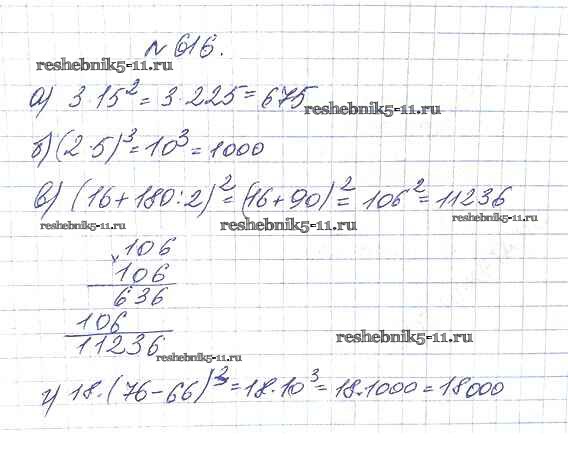 № 616.
reshebnik5-11.ru
а) 3·15² = 3·225 = 675
reshebnik5-11.ru
б) (2·5)³ = 10³ = 1000
в) (16+180:2)² = (16+90)² = 106² = 11236
reshebnik5-11.ru reshebnik5-11.ru reshebnik5-11.ru
106
× 106
636
106
11236
reshebnik5-11.ru
reshebnik5-11.ru
г) 18·(76-66)³ = 18·10³ = 18·1000 = 18000